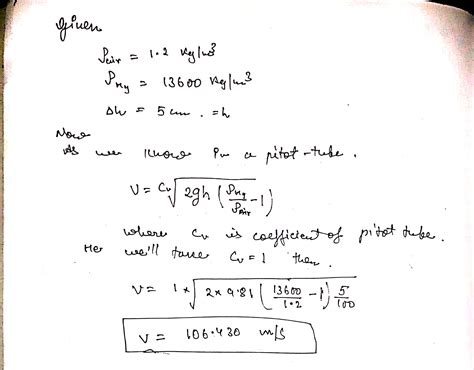 Given
ρair = 1.2 kg/m³
ρHg = 13600 kg/m³
Δh = 5 cm . = h
Now
As we know In a pitot-tube.
V = Cv √(2gh (ρHg/ρAir - 1))
where Cv is coefficient of pitot tube.
He we'll take Cv = 1 then.
V = 1 × √(2×9.81 (13600/1.2 - 1) 5/100)
V = 106.430 m/s